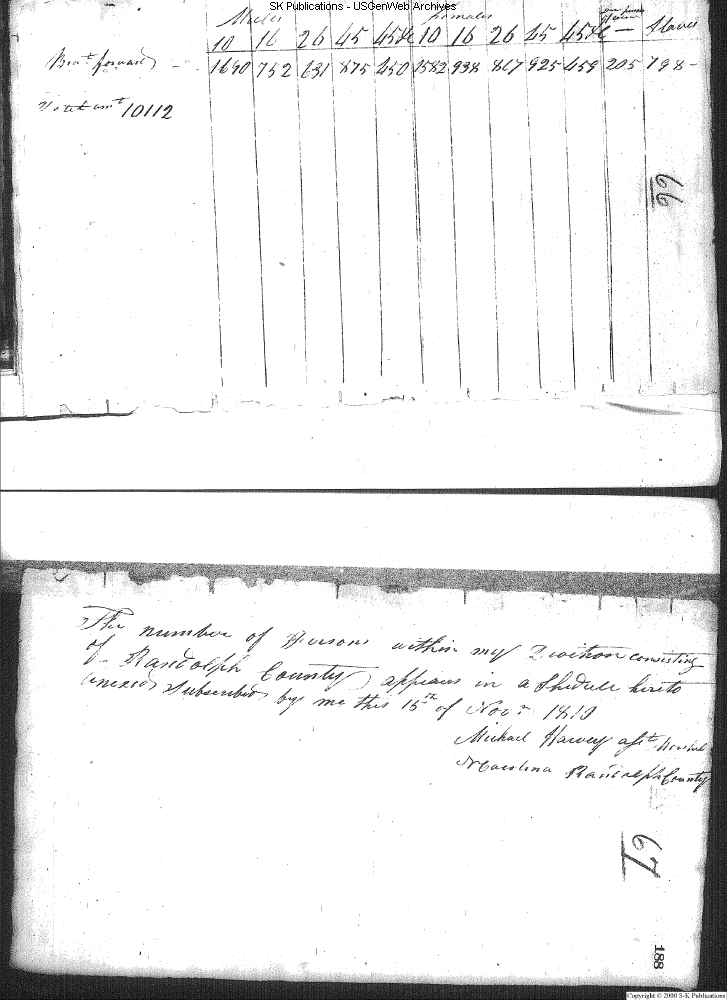 SK Publications - USGenWeb Archives
Males Females
10 16 26 45 45&c 10 16 26 45 45&c Slaves
Brot forward 1690 752 631 875 450 1582 938 817 925 459 205 798
Total amt 10112
66
The number of Persons within my Division consisting
of Randolph County appears in a Shedule hereto
anexed Subscribed by me this 15th of Novr 1810
Michael Harvey asst Marshal
N Carolina Randolph County
67
188
Copyright © 2000 S-K Publications